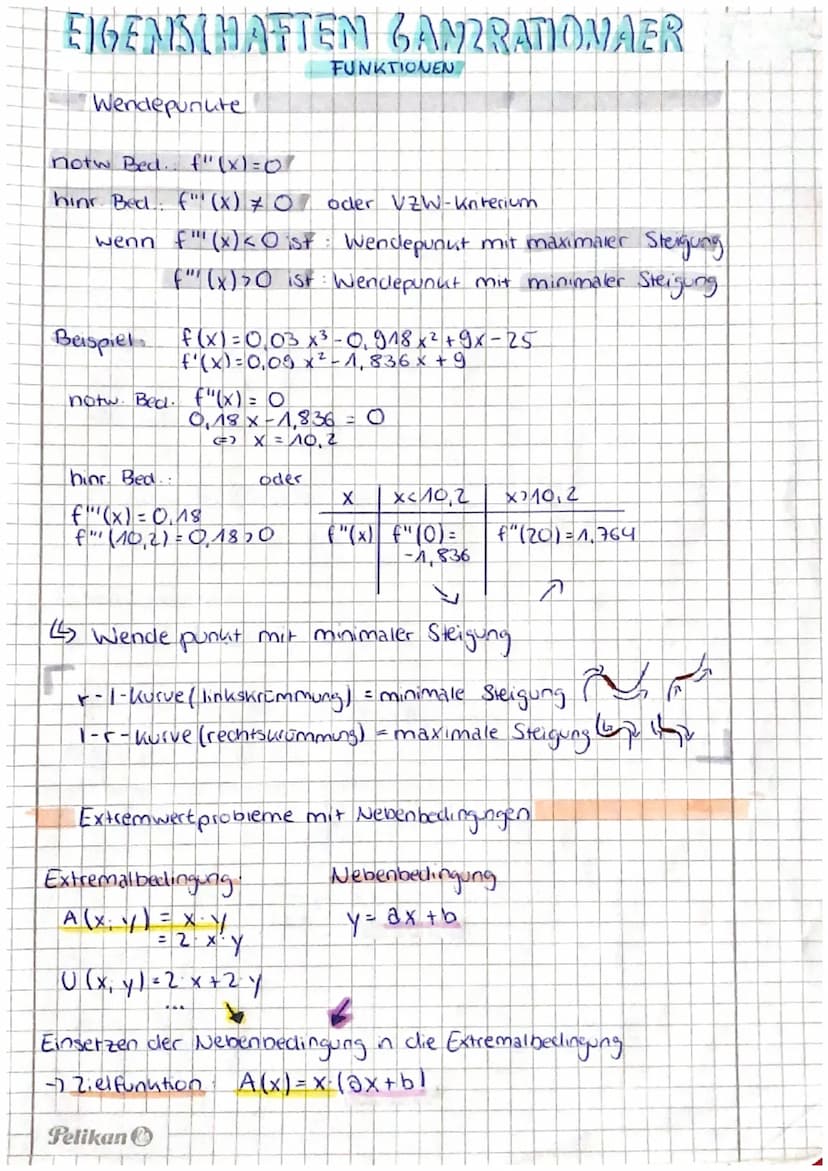 EIGENSCHAFTEN GANZRATIONAER
FUNKTIONEN
Wendepunkte
notw Bed.: f"(x)=0
hinr. Bed.: f"'(x) ≠ 0 oder VZW-Kriterium
wenn f"'(x)<0 ist : Wendepunkt mit maximaler Steigung
f"'(x)>0 ist : Wendepunkt mit minimaler Steigung
Beispiel: f(x)=0,03 x³-0,918x²+9x-25
f'(x)=0,09 x²-1,836x+9
notw. Bed. f"(x)=0
0,18x-1,836=0
<=> x=10,2
hinr. Bed.: oder
x | x<10,2 | x>10,2
f"'(x)=0,18
f"'(10,2)=0,18>0 f"(x) | f"(0)= | f"(20)=1,764
-1,836
↘ ↗
↳ Wendepunkt mit minimaler Steigung
r-l-Kurve (linkskrümmung) = minimale Steigung
l-r-Kurve (rechtskrümmung) = maximale Steigung
Extremwertprobleme mit Nebenbedingungen
Extremalbedingung: Nebenbedingung
A(x;y)=x·y y=ax+b
=2·x·y
U(x,y)=2·x+2·y
...
Einsetzen der Nebenbedingung in die Extremalbedingung
→ Zielfunktion: A(x)=x·(ax+b)
Pelikan